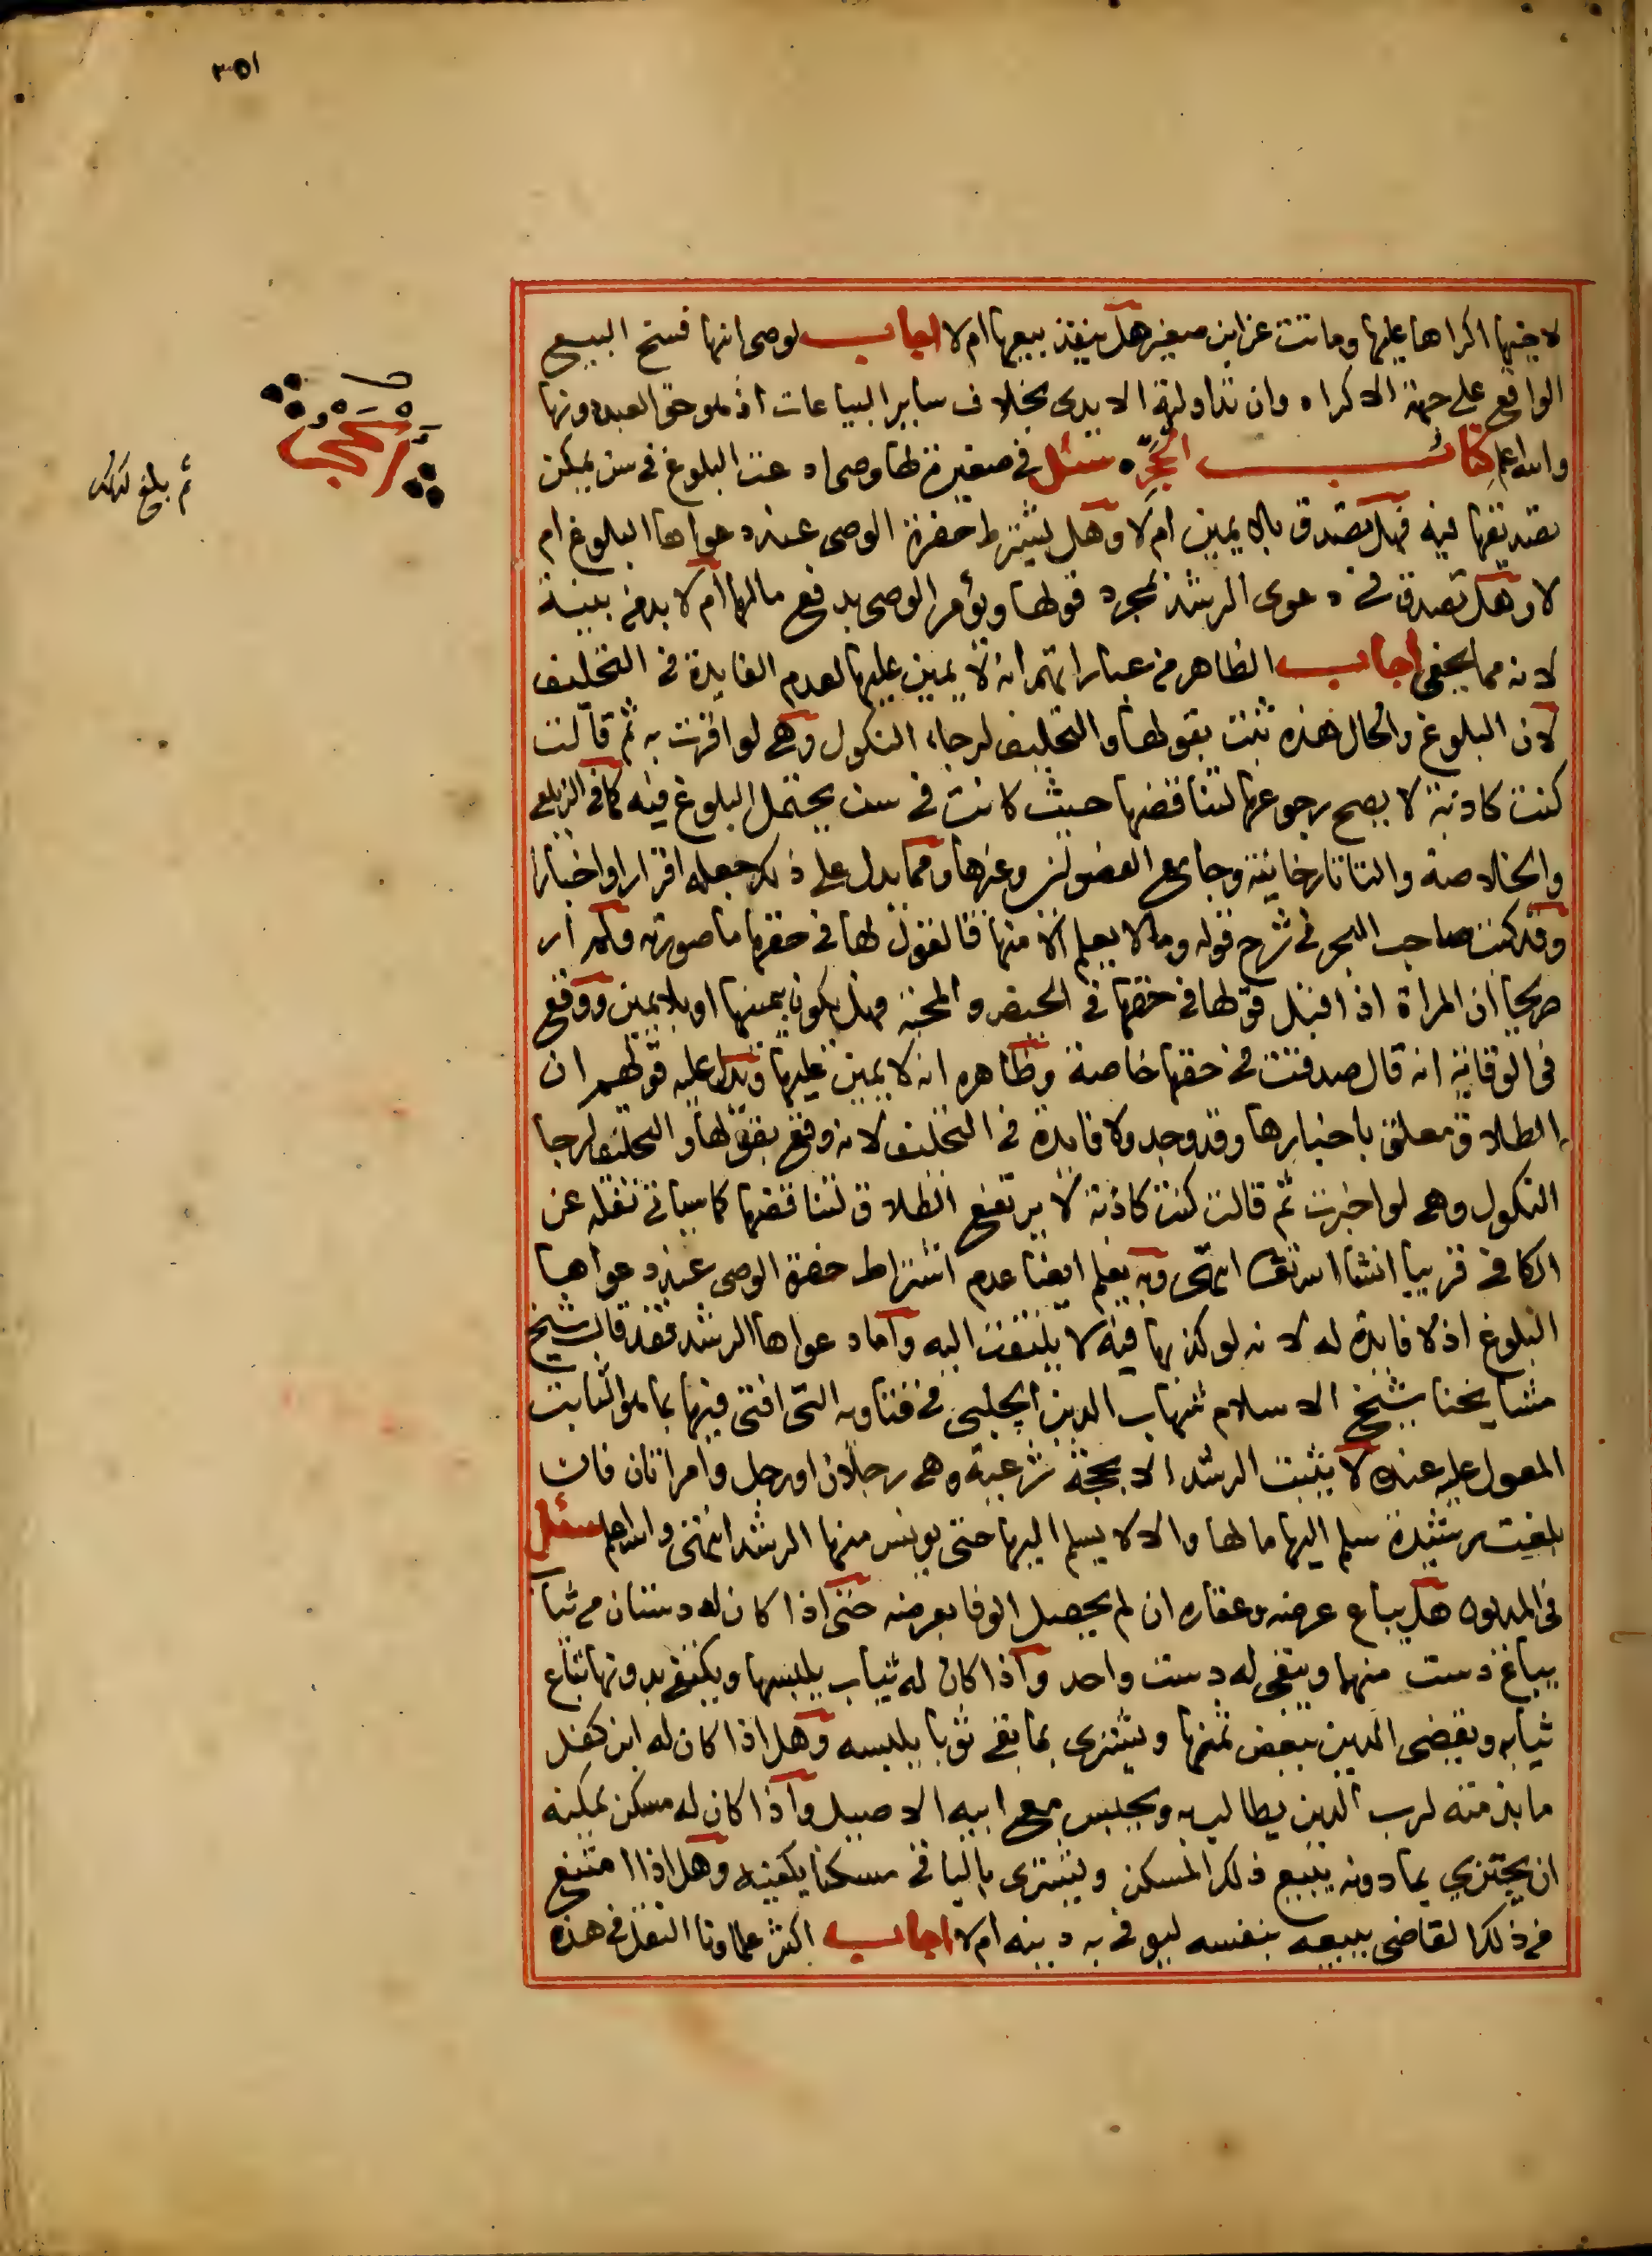 ٣٥١
لاجنبها اكراها عليها وماتت عن ابن صغير هل ينفذ بيعها ام لا اجاب لوصى ابنها فسخ البيع
الواقع على جهة الاكراه وان تداولته الايدى بخلاف سائر البياعات اذ هو حق العبد ونها
والله اعلم كتاب الحجر سئل فى صغيرة لها وصى ادعت البلوغ فى سن يمكن
تصديقها فيه فهل تصدق بلا يمين ام لا وهل يشترط حضرة الوصى عند دعواها البلوغ ام
لا وهل تصدق فى دعوى الرشد بمجرد قولها ويؤمر الوصى بدفع مالها ام لا بد من بينة
لانه مما يخفى اجاب الظاهر من عباراتهم انه لا يمين عليها لعدم الفايدة فى التحليف
لان البلوغ والحال هذه ثبت بقولها والتحليف لرجاء النكول وهى لو اقرت به ثم قالت
كنت كاذبة لا يصح رجوعها لتناقضها حيث كانت فى سن يحتمل البلوغ فيه كما فى الزيلعى
والخلاصة والتاتارخانية وجامع الفصولين وغيرها ومما يدل على ذلك جعله اقرارا واخبارا
وقد كتب صاحب البحر فى شرح قوله وما لا يعلم الا منها فالقول لها فى حقها ما صورته ولم ار
صريحا ان المراة اذا اقبل قولها فى حقها فى الحيض والمحبة هل يكون بيمينها او بلا يمين ووقع
فى الوقاية انه قال صدقت فى حقها خاصة وظاهره انه لا يمين عليها ويدل عليه قولهم ان
الطلاق معلق باخبارها وقد وجد ولا فايدة فى التحليف لانه وقع بقولها والتحليف لرجا
النكول وهى لو اخبرت ثم قالت كنت كاذبة لا يرتفع الطلاق لتناقضها كما سياتى نقله عن
الكافى قريبا انشا الله تعالى انتهى وبه يعلم ايضا عدم اشتراط حضرة الوصى عند دعواها
البلوغ اذ لا فايدة له لانه لو كذبها فيه لا يلتفت اليه واما دعواها الرشد فقد قال شيخ
مشايخنا شيخ الاسلام شهاب الدين الچلبى فى فتاويه التى افتى فيها بما هو الثابت
المعول عليه عنده لا يثبت الرشد الا بحجة شرعية وهى رجلان او رجل وامراتان فان
بلغت رشيدة سلم اليها مالها والا لا يسلم اليها حتى يونس منها الرشد انتهى والله اعلم سئل
فى المديون هل يباع عرضه وعقاره ان لم يحصل الوفا بعرضه حتى اذا كان له دستان من ثياب
يباع دست منهما ويبقى له دست واحد واذا كان له ثياب يلبسها ويكتفى بدونها تباع
ثيابه ويقضى الدين ببعض ثمنها ويشترى بما بقى ثوبا يلبسه وهل اذا كان له ابن كفل
ما بذمته لرب الدين يطالب به ويحبس مع ابيه الاصيل واذا كان له مسكن يمكنه
ان يجتزي بما دونه يبيع ذلك المسكن ويشترى بالباقى مسكنا يكفيه وهل اذا امتنع
من ذلك القاضى يبيعه بنفسه ليوفى به دينه ام لا اجاب اكثر علماؤنا النقل فى هذه